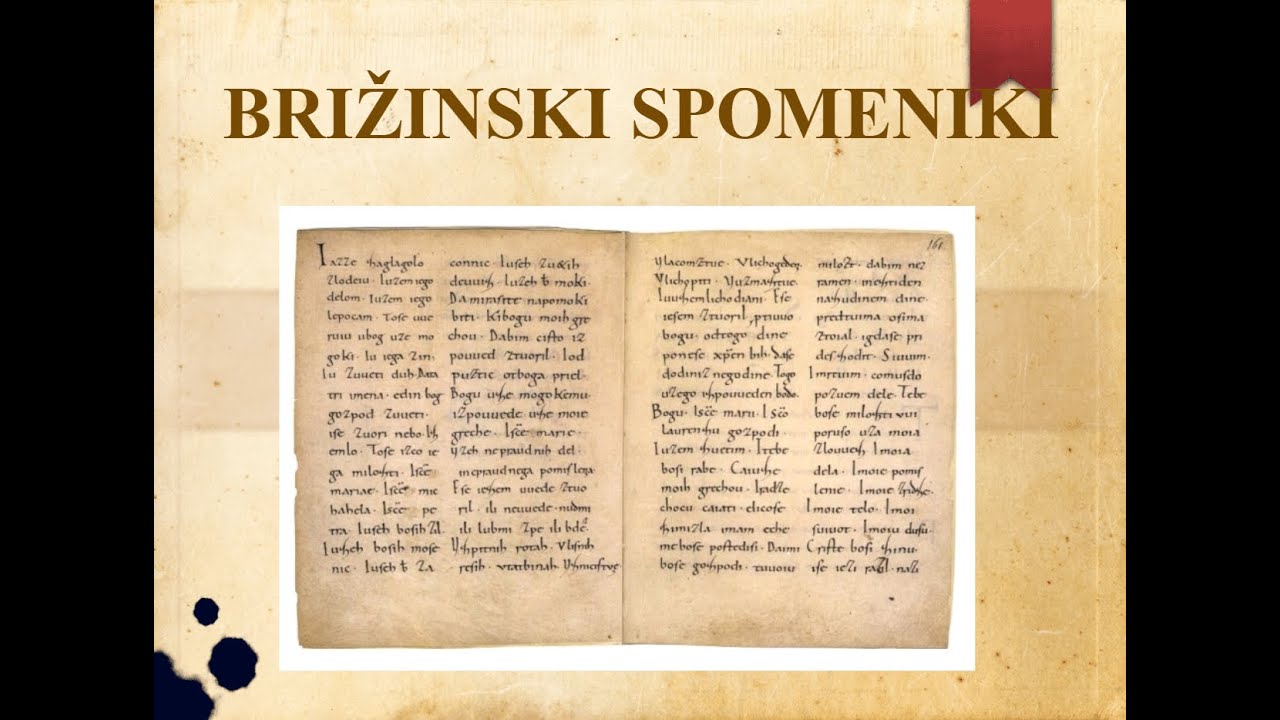 BRIŽINSKI SPOMENIKI
Iazze zaglagolo
zlodeiu. Iuzem iego
delom. Iuzem iego
lepocam. Tose uue
ruiu ubog uze mo
goki. Iu iega zin.
Iu zuueti duh. Data
tri imena. edin bog
gozpod zuueti.
ise zuori nebo. Izh
emlo. Tose izco ie
ga milozti. Isce
mariae. Isce mic
hahela. Isce pe
tra. Iuseh bosih zl.
Iuzeh bosih mose
nic. Iuseh bosih za
connic. Iuseh zuetih
deuuiz. Iuzeh moki.
Da mirasite napomoki
biti. Kibogu moih gre
chou. Dabim cisto iz
pouued ztuoril. Iod
puztic otboga priel.
Bogu uze mogokemu.
izpouuede uze moie
greche. Isce marie.
uzeh nepraudnih del.
inepraudnega pomislega.
Ese iezem uuede ztuo
ril. ili neuuede. nudmi
ili lubmi zpe ili bde.
Uzpitnih rotah. Vlisnih
resih. Vtatbinah. Uznicistuoe
161.
Vlacomztue. Vlichogeden.
Vlichopiti. Vuzmaztue.
Iuuzem lichodiani. Ese
iesem ztuoril. ptiuuo
bogu. odtogo dine
ponese xpen bih. dase
dodiniz negodine. Togo
uzego izpouueden bodo.
Bogu. Isce marii. Isco
Laurenzu gozpodi.
Iuzem zuetim. Itebe
bosi rabe. Caiuze
moih grechou. Iradze
chocu caiati. elicose
zimizla imam eche
me bose postedisi. Daimi
bose gozpodi. tuuoiu
milozt. dabim nez
ramen. neztiden
nazudinem dine
predtuima osima
ztoial. igdase pri
des zodit. Siuuim.
Imrtuim. comusdo
pozuem dele. Tebe
bose milozti uui
poruso uza moia
zlouuez. Imoia
dela. Imoie pomis
lenie. Imoie zridze.
Imoie telo. Imoi
siuuot. Imoiu dusu.
Criste bosi zinu.
ise iezi razil nazi